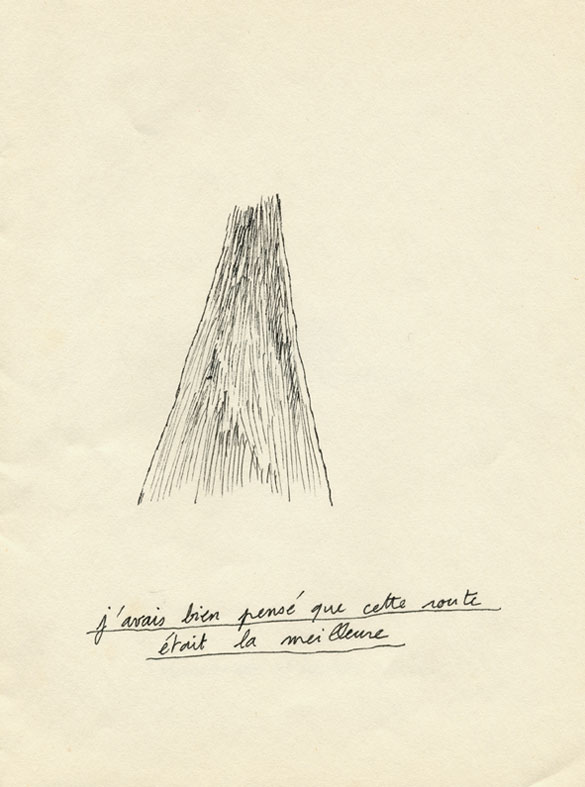 j'avais bien pensé que cette route
était la meilleure